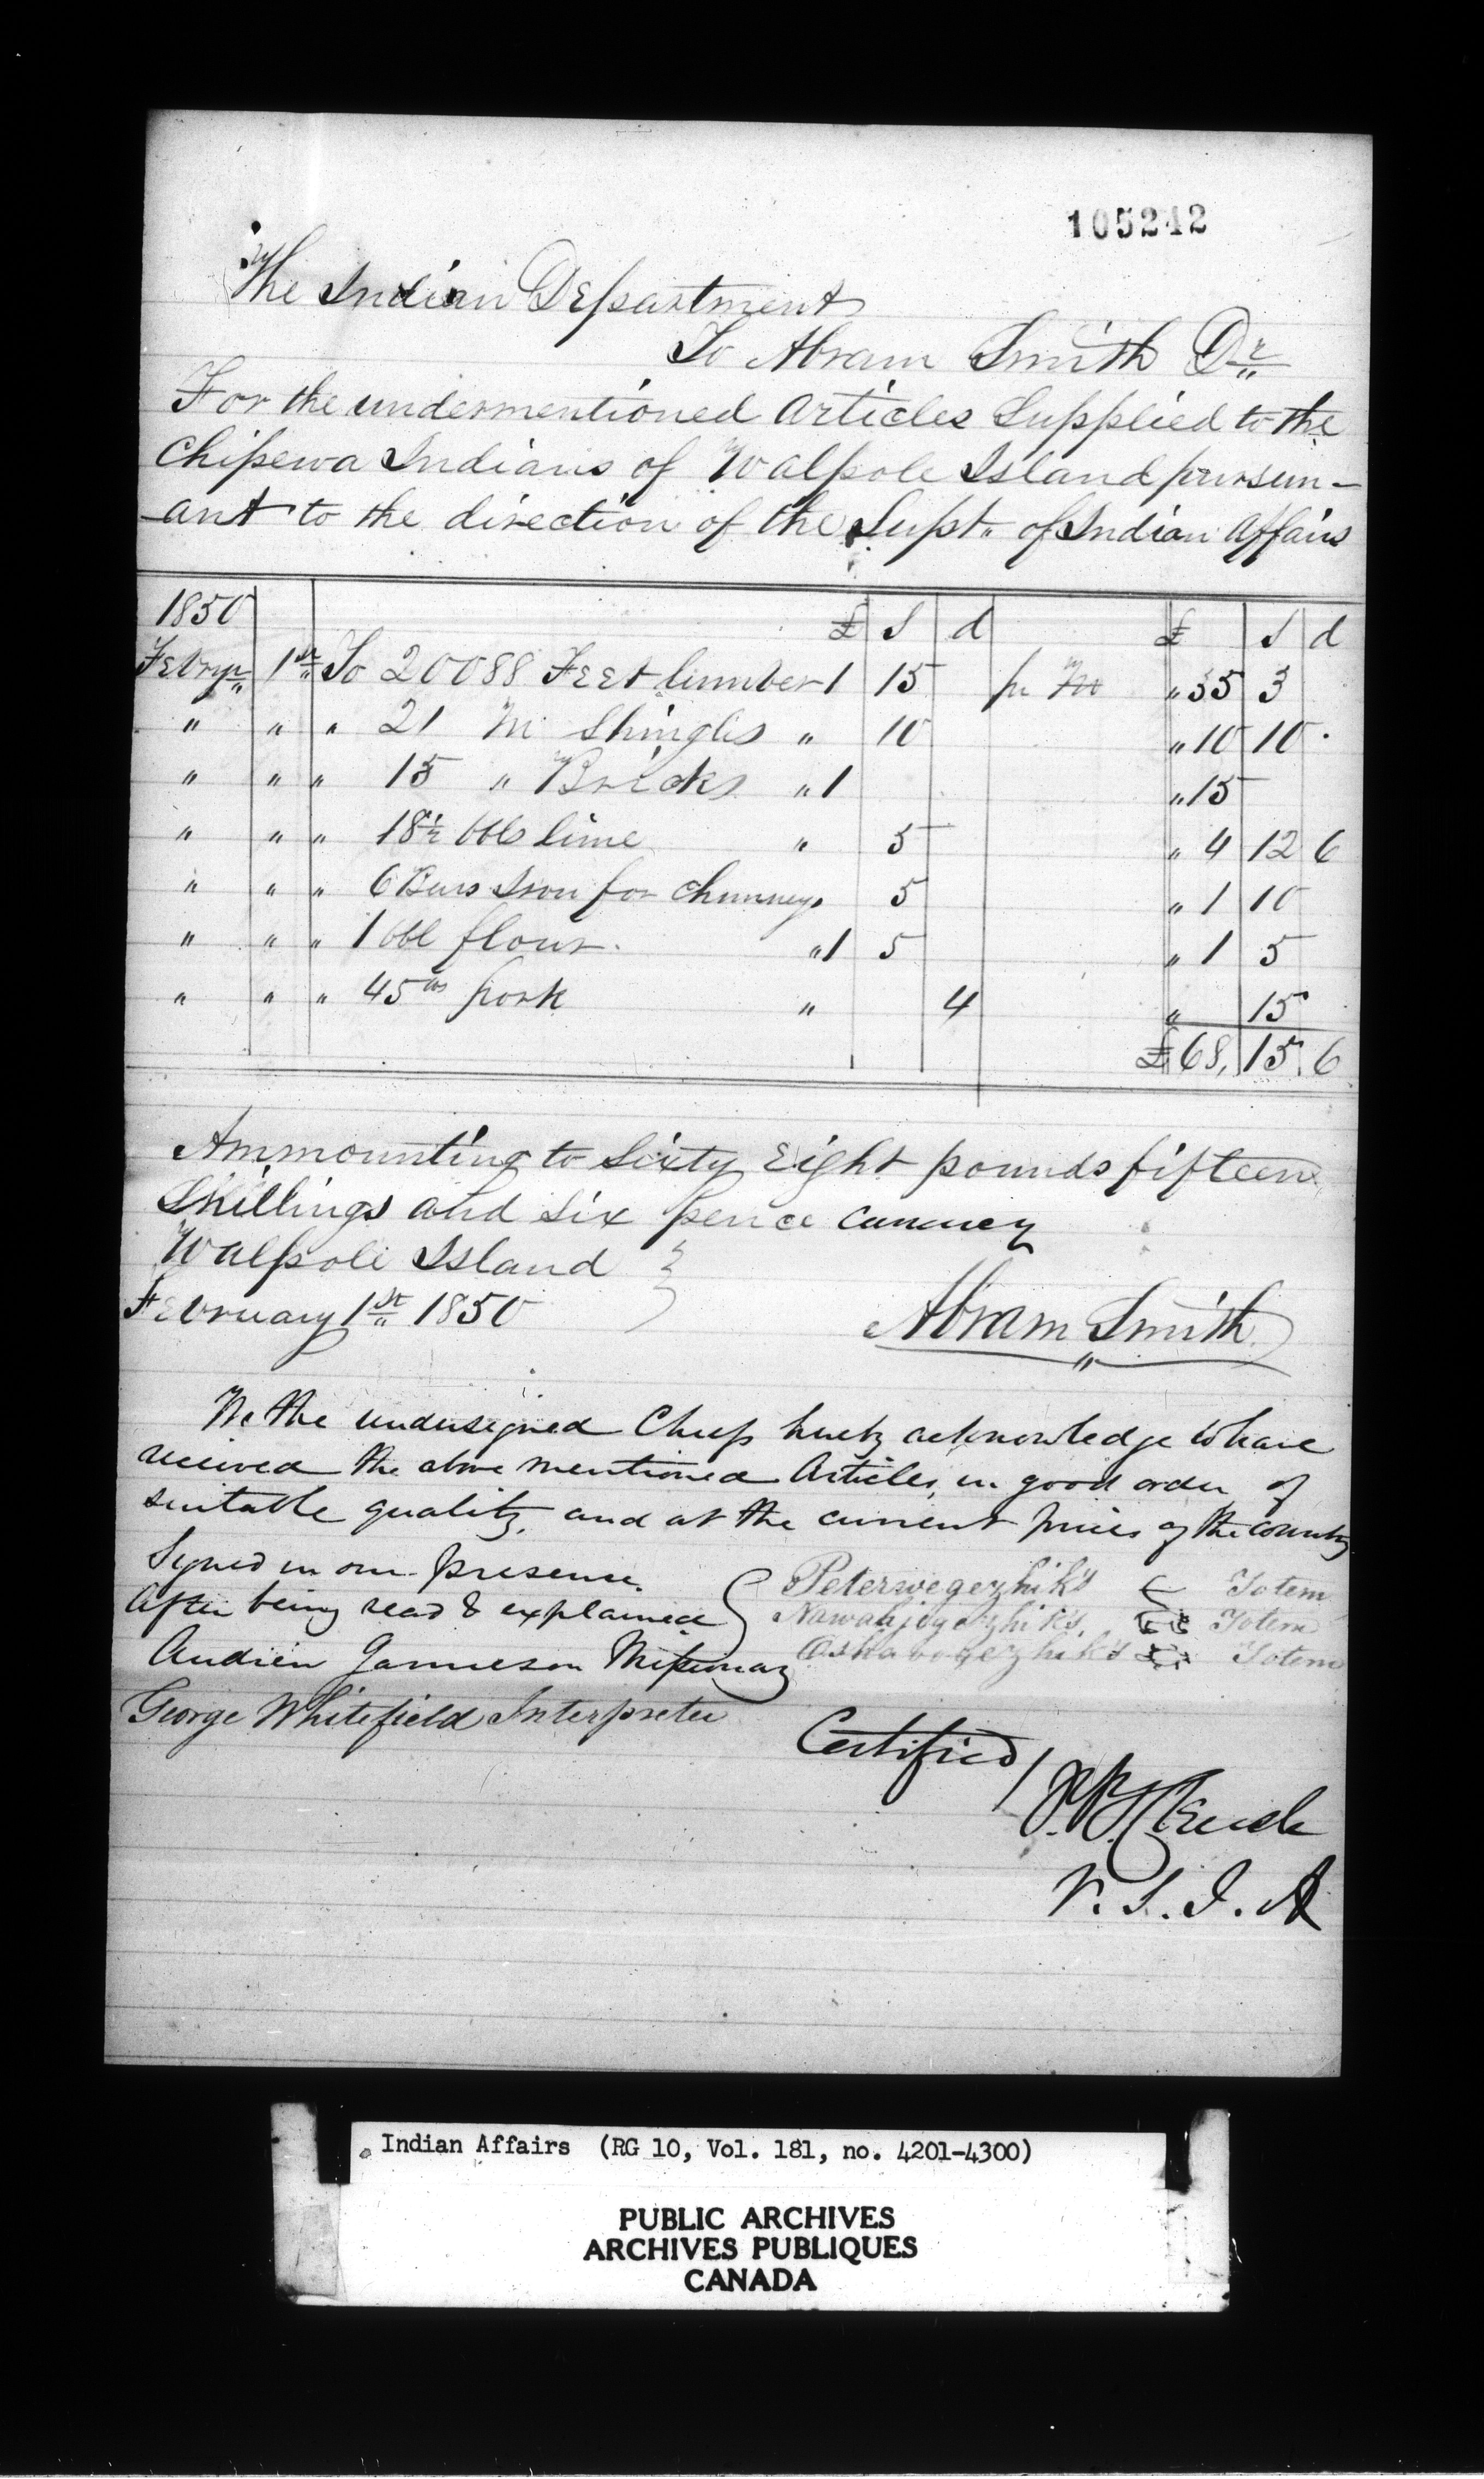 105242
The Indian Department
To Abram Smith Dr
For the undermentioned Articles Supplied to the
Chipewa Indians of Walpole Island pursun-
-ant to the direction of the Supt. of Indian Affairs
1850 £ S d £ S d
Febry 1st To 20088 Feet lumber 1 15 pr M " 35 3
" " " 21 M Shingles " 10 " 10 10
" " " 15 " Bricks " 1 " 15
" " " 18½ bbls lime " 5 " 4 12 6
" " " 6 Bars Iron for chimneys 5 " 1 10
" " " 1 bbl flour " 1 5 " 1 5
" " " 45 lbs pork " 4 " 15
£ 68, 15, 6
Ammounting to Sixty Eight pounds fifteen
Shillings and six pence currency
Walpole Island
February 1st 1850
Abram Smith
We the undersigned Chiefs hereby acknowledge to have
received the above mentioned Articles, in good order of
suitable quality, and at the current prices of the country
Signed in our presence
After being read & explained
Peterwegezhik's Totem
Totem
Totem
Andrew Jamieson Missionary
George Whitefield Interpreter
Certified
J. B. Clench
V. S. I. A
Indian Affairs (RG 10, Vol. 181, no. 4201-4300)
PUBLIC ARCHIVES
ARCHIVES PUBLIQUES
CANADA